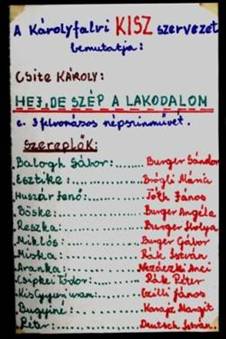 A Károlyfalvi KISZ szervezet
bemutatja:
Csite KÁROLY:
HEJ, DE SZÉP A LAKODALOM
c. 3 felvonásos népszínművet.
Szereplők:
Balogh Gábor:....... Burger Sándor
Esztike:............ Bögli Mária
Huszár Jenő:........ Tóth János
Böske:.............. Burger Angéla
Reszka:............. Burger Ibolya
Miklós:............. Burger Gábor
Miska:.............. Rák István
Aranka:............. Anci
Csipkei Tódor:...... Rák Péter
Kis Gyuri uram:..... Czilli János
Bugyiné:............ Margit
Péter:.............. Deutsch István